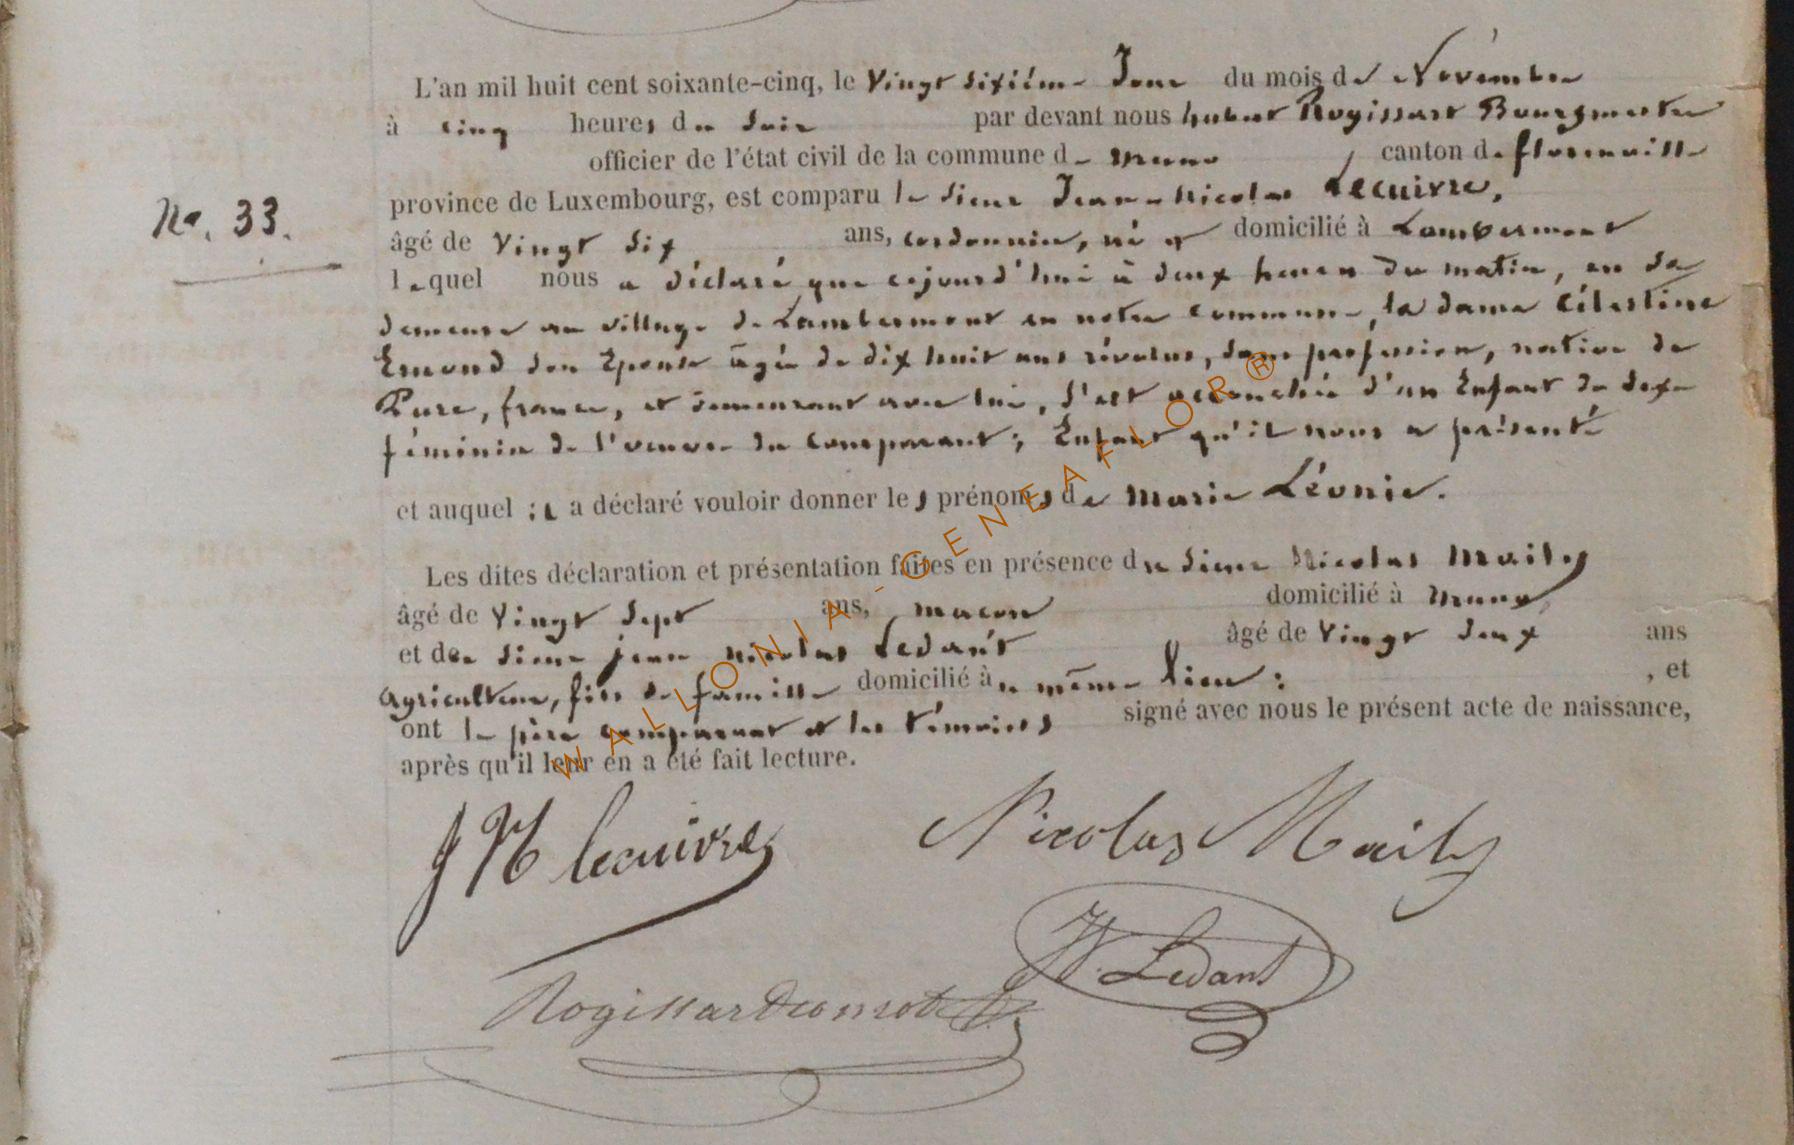 L'an mil huit cent soixante-cinq, le Vingt sixième Jour du mois de Novembre
à cinq heures du soir par devant nous hubert Rogissart Bourgmestre
officier de l'état civil de la commune de Muno, canton de florenville
province de Luxembourg, est comparu le sieur Jean-Nicolas Lecuivre,
No. 33.
âgé de vingt six ans, cordonnier, né et domicilié à Lambermont
lequel nous a déclaré que cejourd'hui à deux heures du matin, en sa
demeure au village de Lambermont en notre commune, la dame Célestine
Emond son Epouse âgée de dix huit ans révolus, sans profession, native de
Pure, france, et demeurant avec lui, s'est accouchée d'un Enfant du sexe
féminin de l'oeuvre du comparant; Enfant qu'il nous a présenté
et auquel il a déclaré vouloir donner les prénoms de Marie Léonie.
Les dites déclaration et présentation faites en présence du sieur Nicolas Maily
âgé de vingt sept ans, macon domicilié à Muno
et de sieur jean nicolas Ledant âgé de vingt deux ans
agriculteur, fils de famille domicilié à même lieu : , et
ont le père comparant et les témoins signé avec nous le présent acte de naissance,
après qu'il leur en a été fait lecture.
JN lecuivre Nicolas Maily
JN. Ledant
Rogissart
WALLONIA-GENEAFLOR®